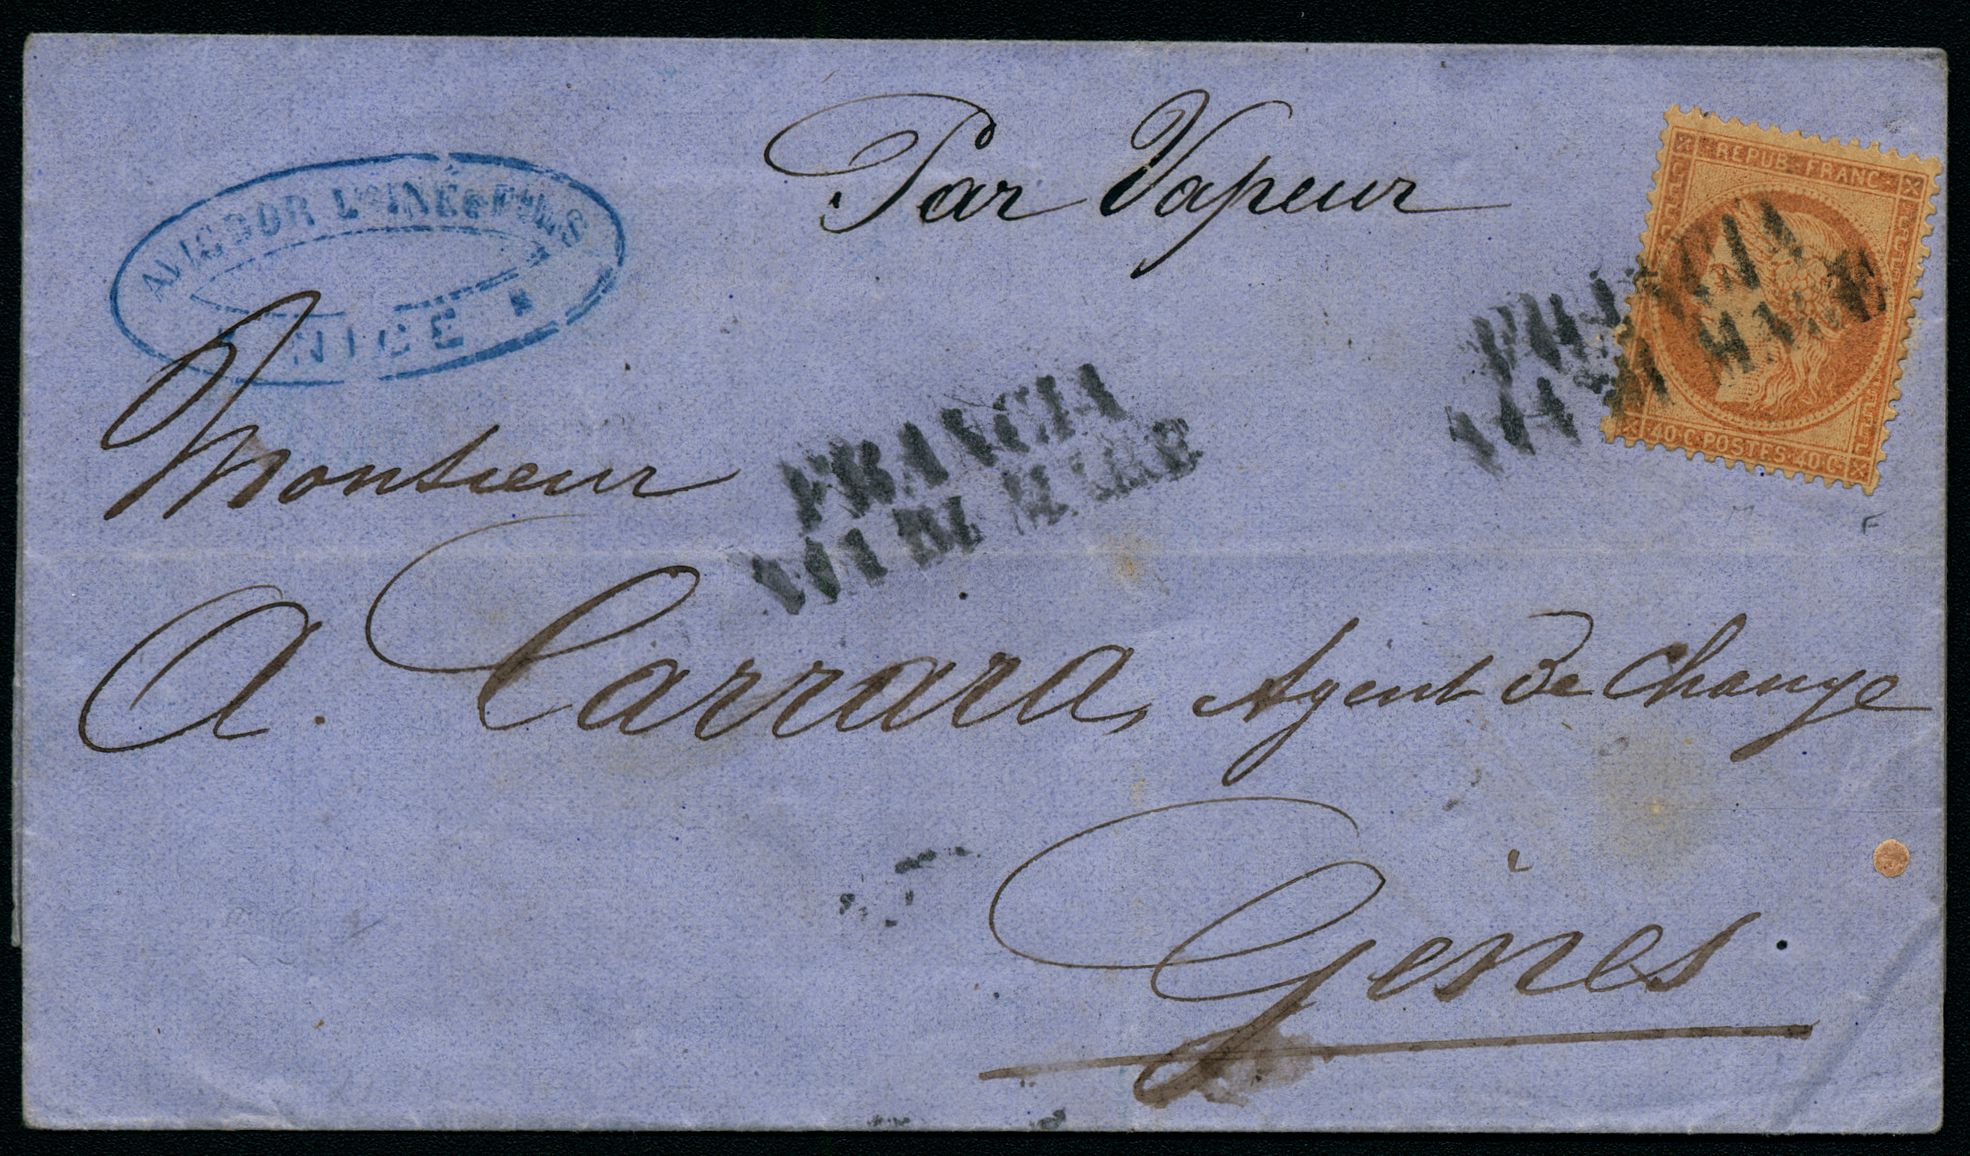 Par Vapeur
AVIGDOR L'AINÉ & FILS
NICE
REPUB. FRANC.
40 C. POSTES 40 C.
FRANCIA
VIA DI MARE
Monsieur
FRANCIA
VIA DI MARE
A. Carrara, Agent De Change
Gènes